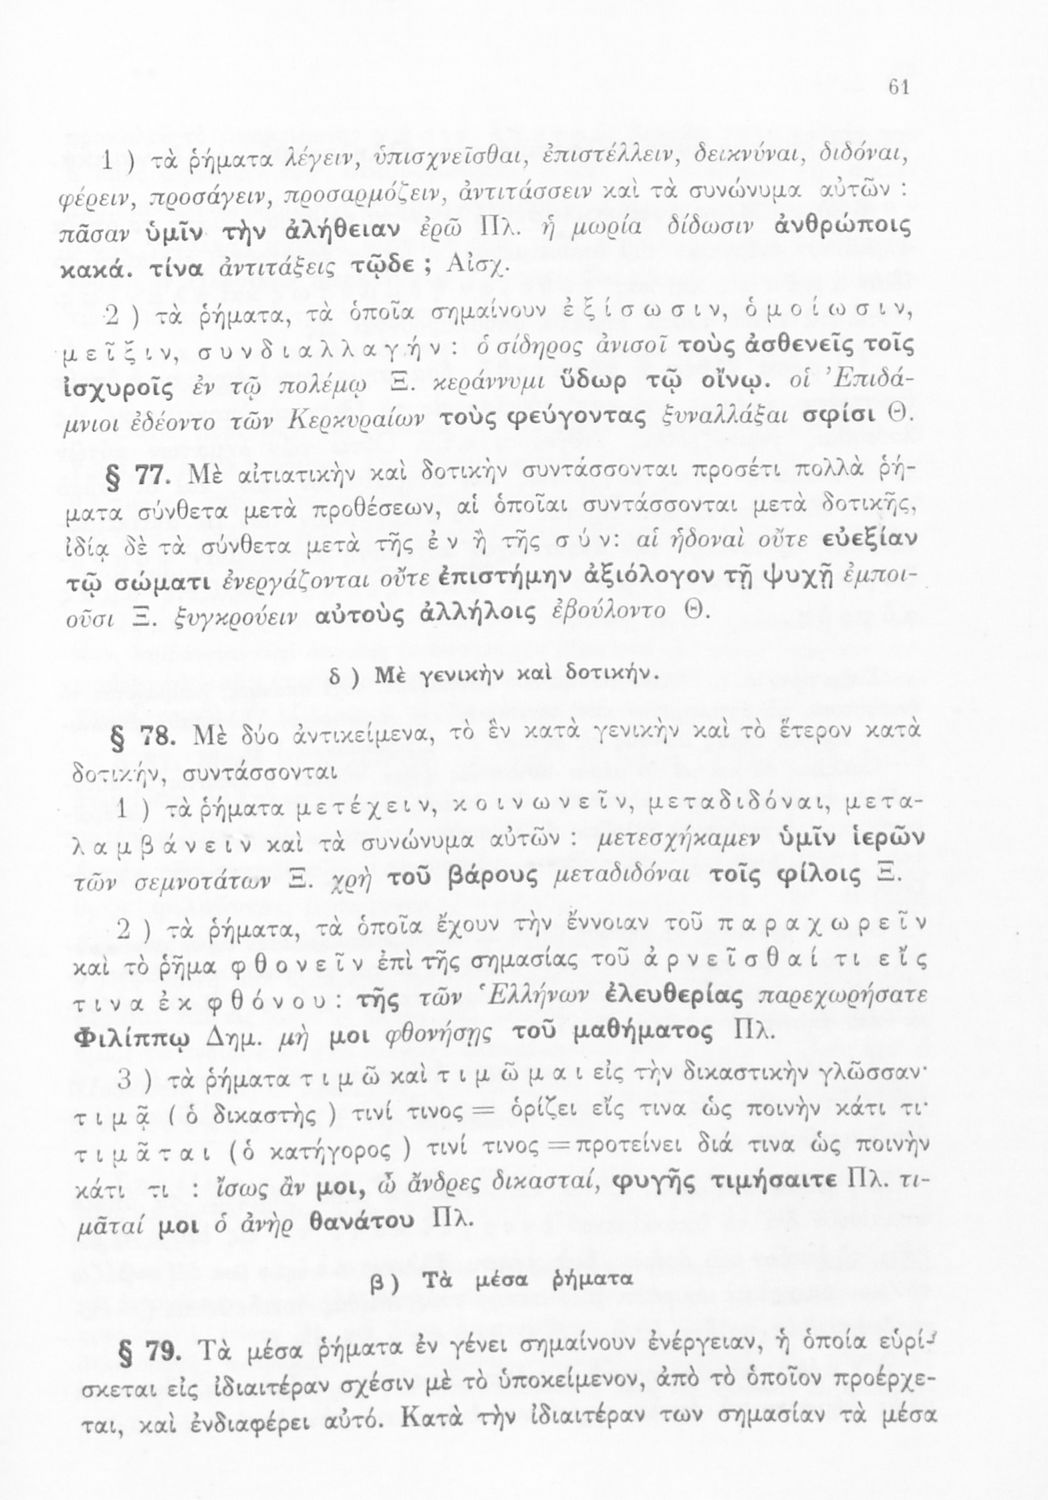 61
1 ) τὰ ῥήματα λέγειν, ὑπισχνεῖσθαι, ἐπιστέλλειν, δεικνύναι, διδόναι,
φέρειν, προσάγειν, προσαρμόζειν, ἀντιτάσσειν καὶ τὰ συνώνυμα αὐτῶν :
πᾶσαν ὑμῖν τὴν ἀλήθειαν ἐρῶ Πλ. ἡ μωρία δίδωσιν ἀνθρώποις
κακά. τίνα ἀντιτάξεις τῷδε ; Αἰσχ.
2 ) τὰ ῥήματα, τὰ ὁποῖα σημαίνουν ἐξίσωσιν, ὁμοίωσιν,
μεῖξιν, συνδιαλλαγήν : ὁ σίδηρος ἀνισοῖ τοὺς ἀσθενεῖς τοῖς
ἰσχυροῖς ἐν τῷ πολέμῳ Ξ. κεράννυμι ὕδωρ τῷ οἴνῳ. οἱ Ἐπιδά-
μνιοι ἐδέοντο τῶν Κερκυραίων τοὺς φεύγοντας ξυναλλάξαι σφίσι Θ.
§ 77. Μὲ αἰτιατικὴν καὶ δοτικὴν συντάσσονται προσέτι πολλὰ ῥή-
ματα σύνθετα μετὰ προθέσεων, αἱ ὁποῖαι συντάσσονται μετὰ δοτικῆς,
ἰδίᾳ δὲ τὰ σύνθετα μετὰ τῆς ἐν ἢ τῆς σύν: αἱ ἡδοναὶ οὔτε εὐεξίαν
τῷ σώματι ἐνεργάζονται οὔτε ἐπιστήμην ἀξιόλογον τῇ ψυχῇ ἐμποι-
οῦσι Ξ. ξυγκρούειν αὐτοὺς ἀλλήλοις ἐβούλοντο Θ.
δ ) Μὲ γενικὴν καὶ δοτικήν.
§ 78. Μὲ δύο ἀντικείμενα, τὸ ἓν κατὰ γενικὴν καὶ τὸ ἕτερον κατὰ
δοτικήν, συντάσσονται
1 ) τὰ ῥήματα μετέχειν, κοινωνεῖν, μεταδιδόναι, μετα-
λαμβάνειν καὶ τὰ συνώνυμα αὐτῶν : μετεσχήκαμεν ὑμῖν ἱερῶν
τῶν σεμνοτάτων Ξ. χρὴ τοῦ βάρους μεταδιδόναι τοῖς φίλοις Ξ.
2 ) τὰ ῥήματα, τὰ ὁποῖα ἔχουν τὴν ἔννοιαν τοῦ παραχωρεῖν
καὶ τὸ ῥῆμα φθονεῖν ἐπὶ τῆς σημασίας τοῦ ἀρνεῖσθαί τι εἴς
τινα ἐκ φθόνου : τῆς τῶν Ἑλλήνων ἐλευθερίας παρεχωρήσατε
Φιλίππῳ Δημ. μὴ μοι φθονήσῃς τοῦ μαθήματος Πλ.
3 ) τὰ ῥήματα τιμῶ καὶ τιμῶμαι εἰς τὴν δικαστικὴν γλῶσσαν·
τιμᾷ ( ὁ δικαστὴς ) τινί τινος = ὁρίζει εἴς τινα ὡς ποινὴν κάτι τι·
τιμᾶται (ὁ κατήγορος ) τινί τινος = προτείνει διά τινα ὡς ποινὴν
κάτι τι : ἴσως ἂν μοι, ὦ ἄνδρες δικασταί, φυγῆς τιμήσαιτε Πλ. τι-
μᾶταί μοι ὁ ἀνὴρ θανάτου Πλ.
β ) Τὰ μέσα ῥήματα
§ 79. Τὰ μέσα ῥήματα ἐν γένει σημαίνουν ἐνέργειαν, ἡ ὁποία εὑρί-
σκεται εἰς ἰδιαιτέραν σχέσιν μὲ τὸ ὑποκείμενον, ἀπὸ τὸ ὁποῖον προέρχε-
ται, καὶ ἐνδιαφέρει αὐτό. Κατὰ τὴν ἰδιαιτέραν των σημασίαν τὰ μέσα